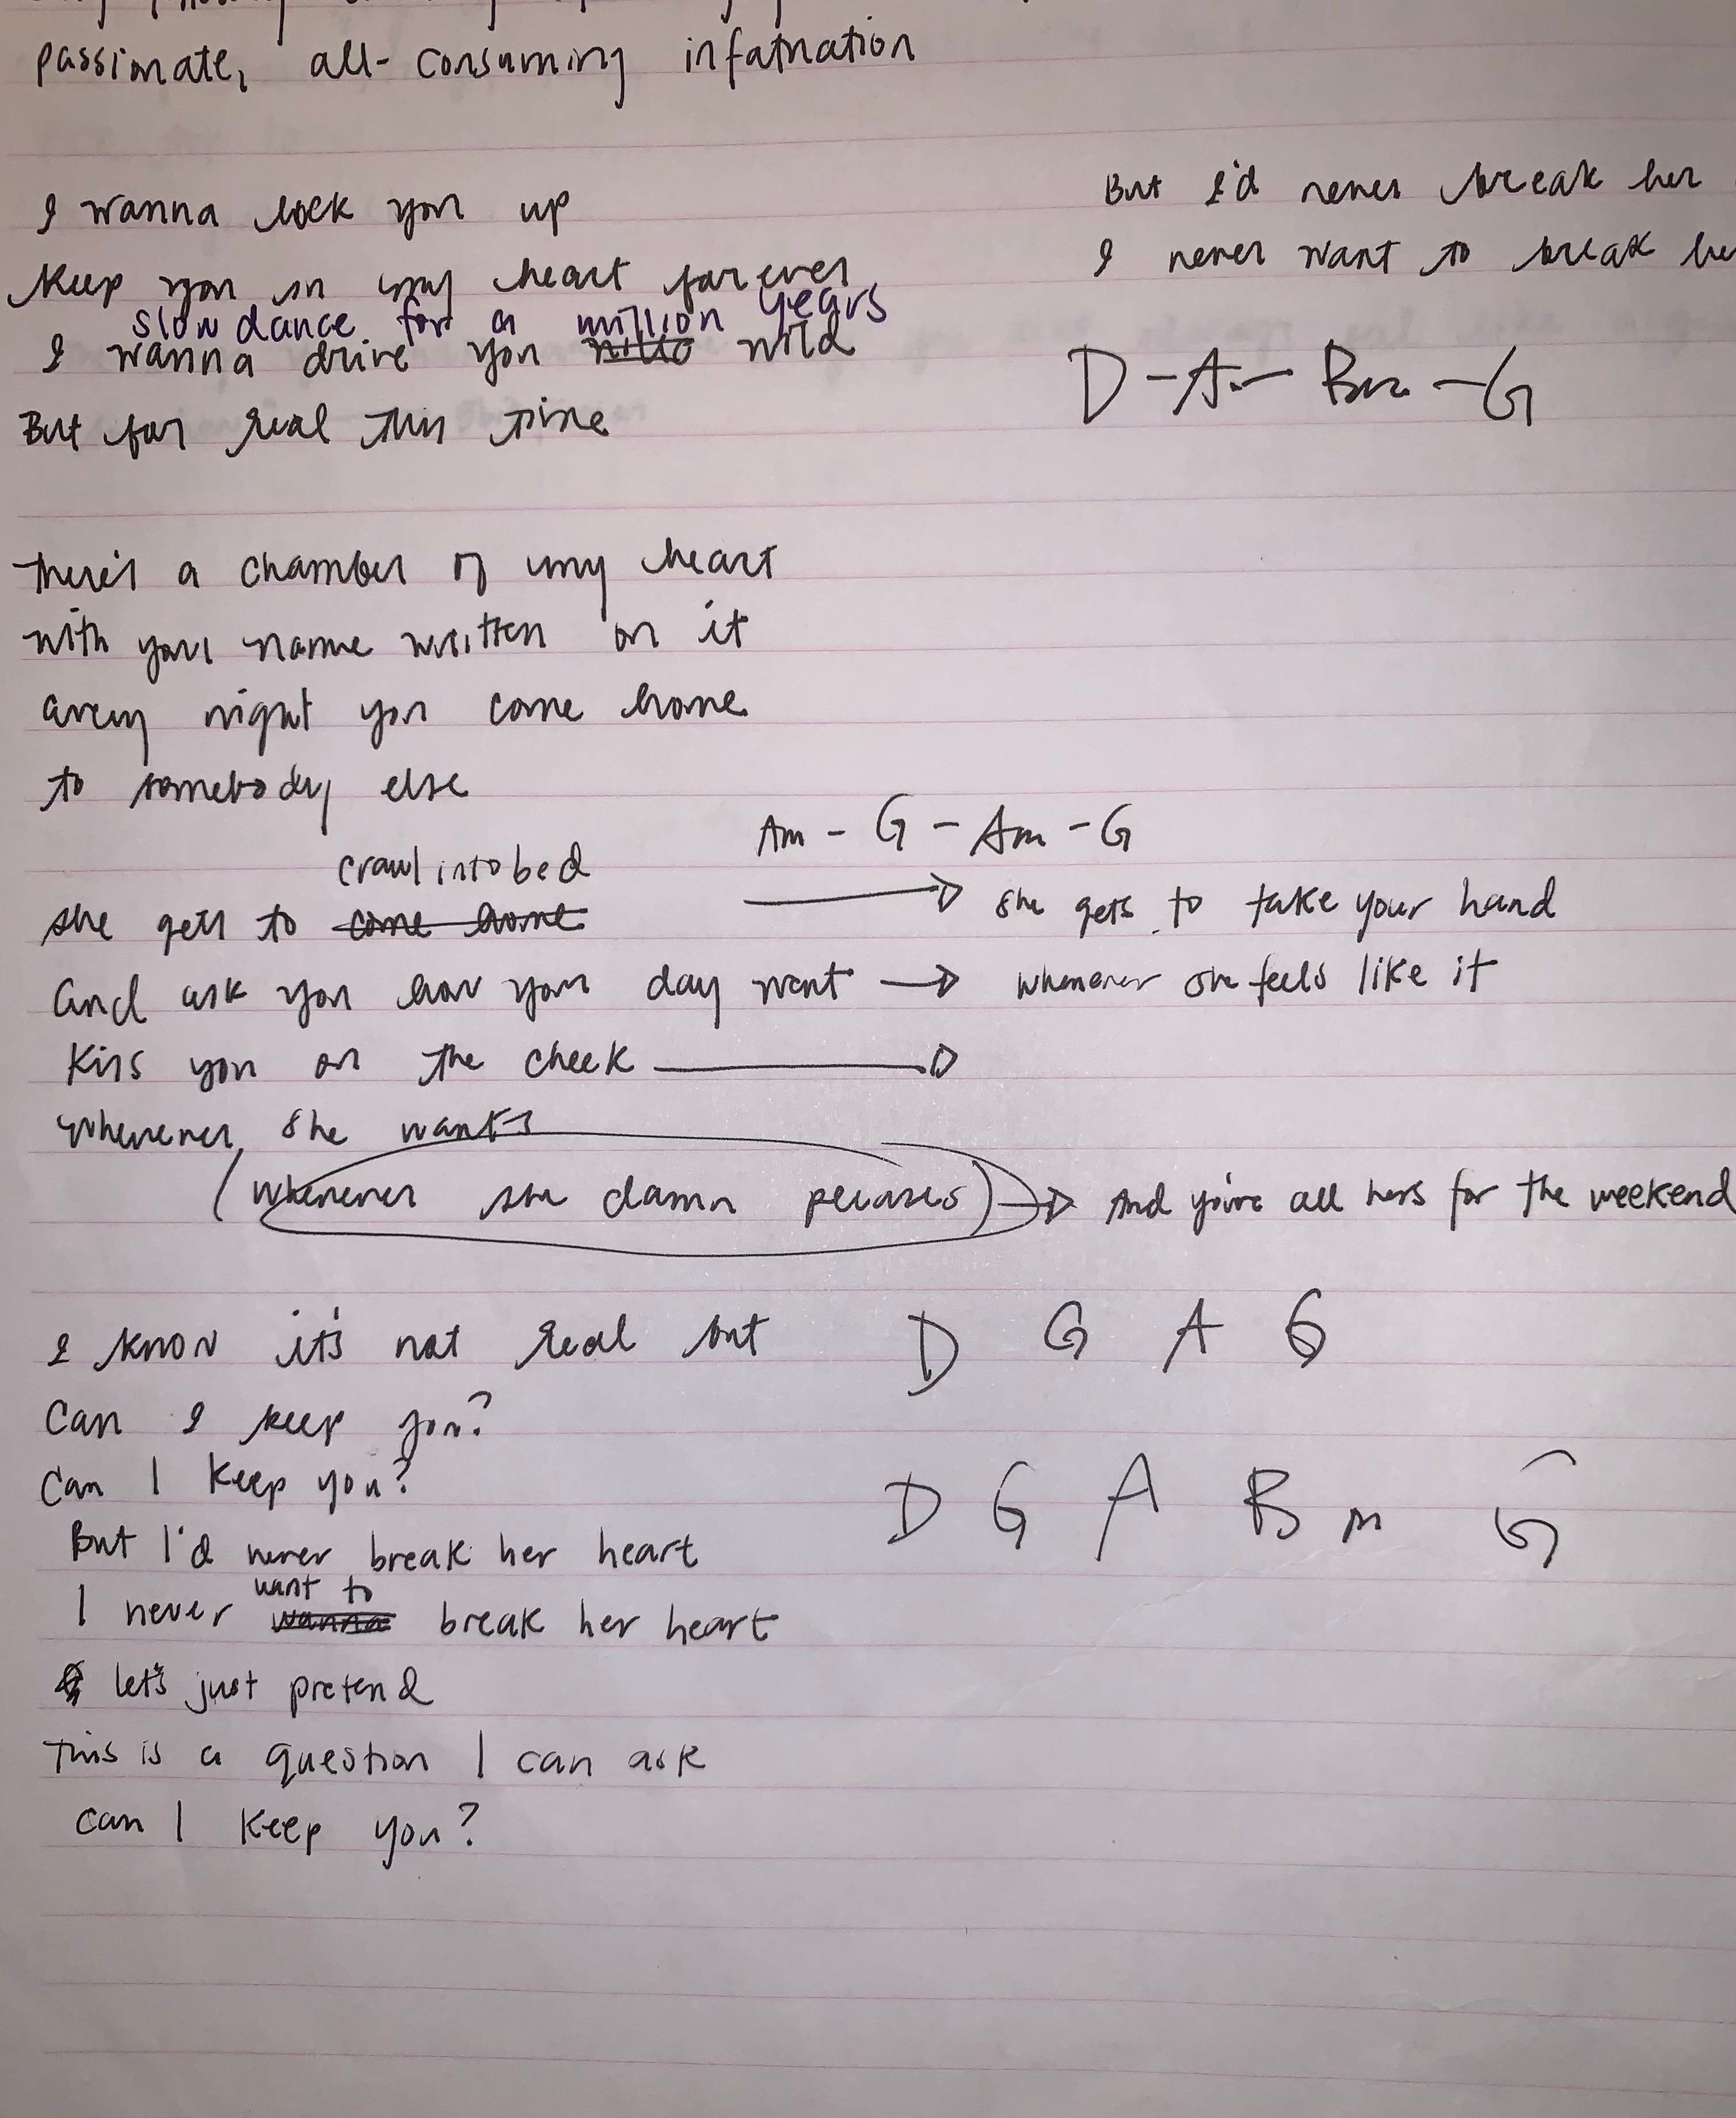 passionate, all-consuming infatuation
I wanna lock you up
Keep you in my heart forever
slow dance for a million years
I wanna drive you wild
But for real this time
But I'd never break her
I never want to break
D - A - Bm - G
there's a chamber of my heart
with your name written on it
every night you come home
to somebody else
Am - G - Am - G
crawl into bed
she gets to come home → she gets to take your hand
and ask you how your day went → whenever she feels like it
kiss you on the cheek →
whenever she wants
(whenever she damn pleases) → And you're all hers for the weekend
I know it's not real but
D G A G
can I keep you?
can I keep you?
D G A Bm G
But I'd never break her heart
want to
I never wanna break her heart
let's just pretend
This is a question I can ask
can I keep you?